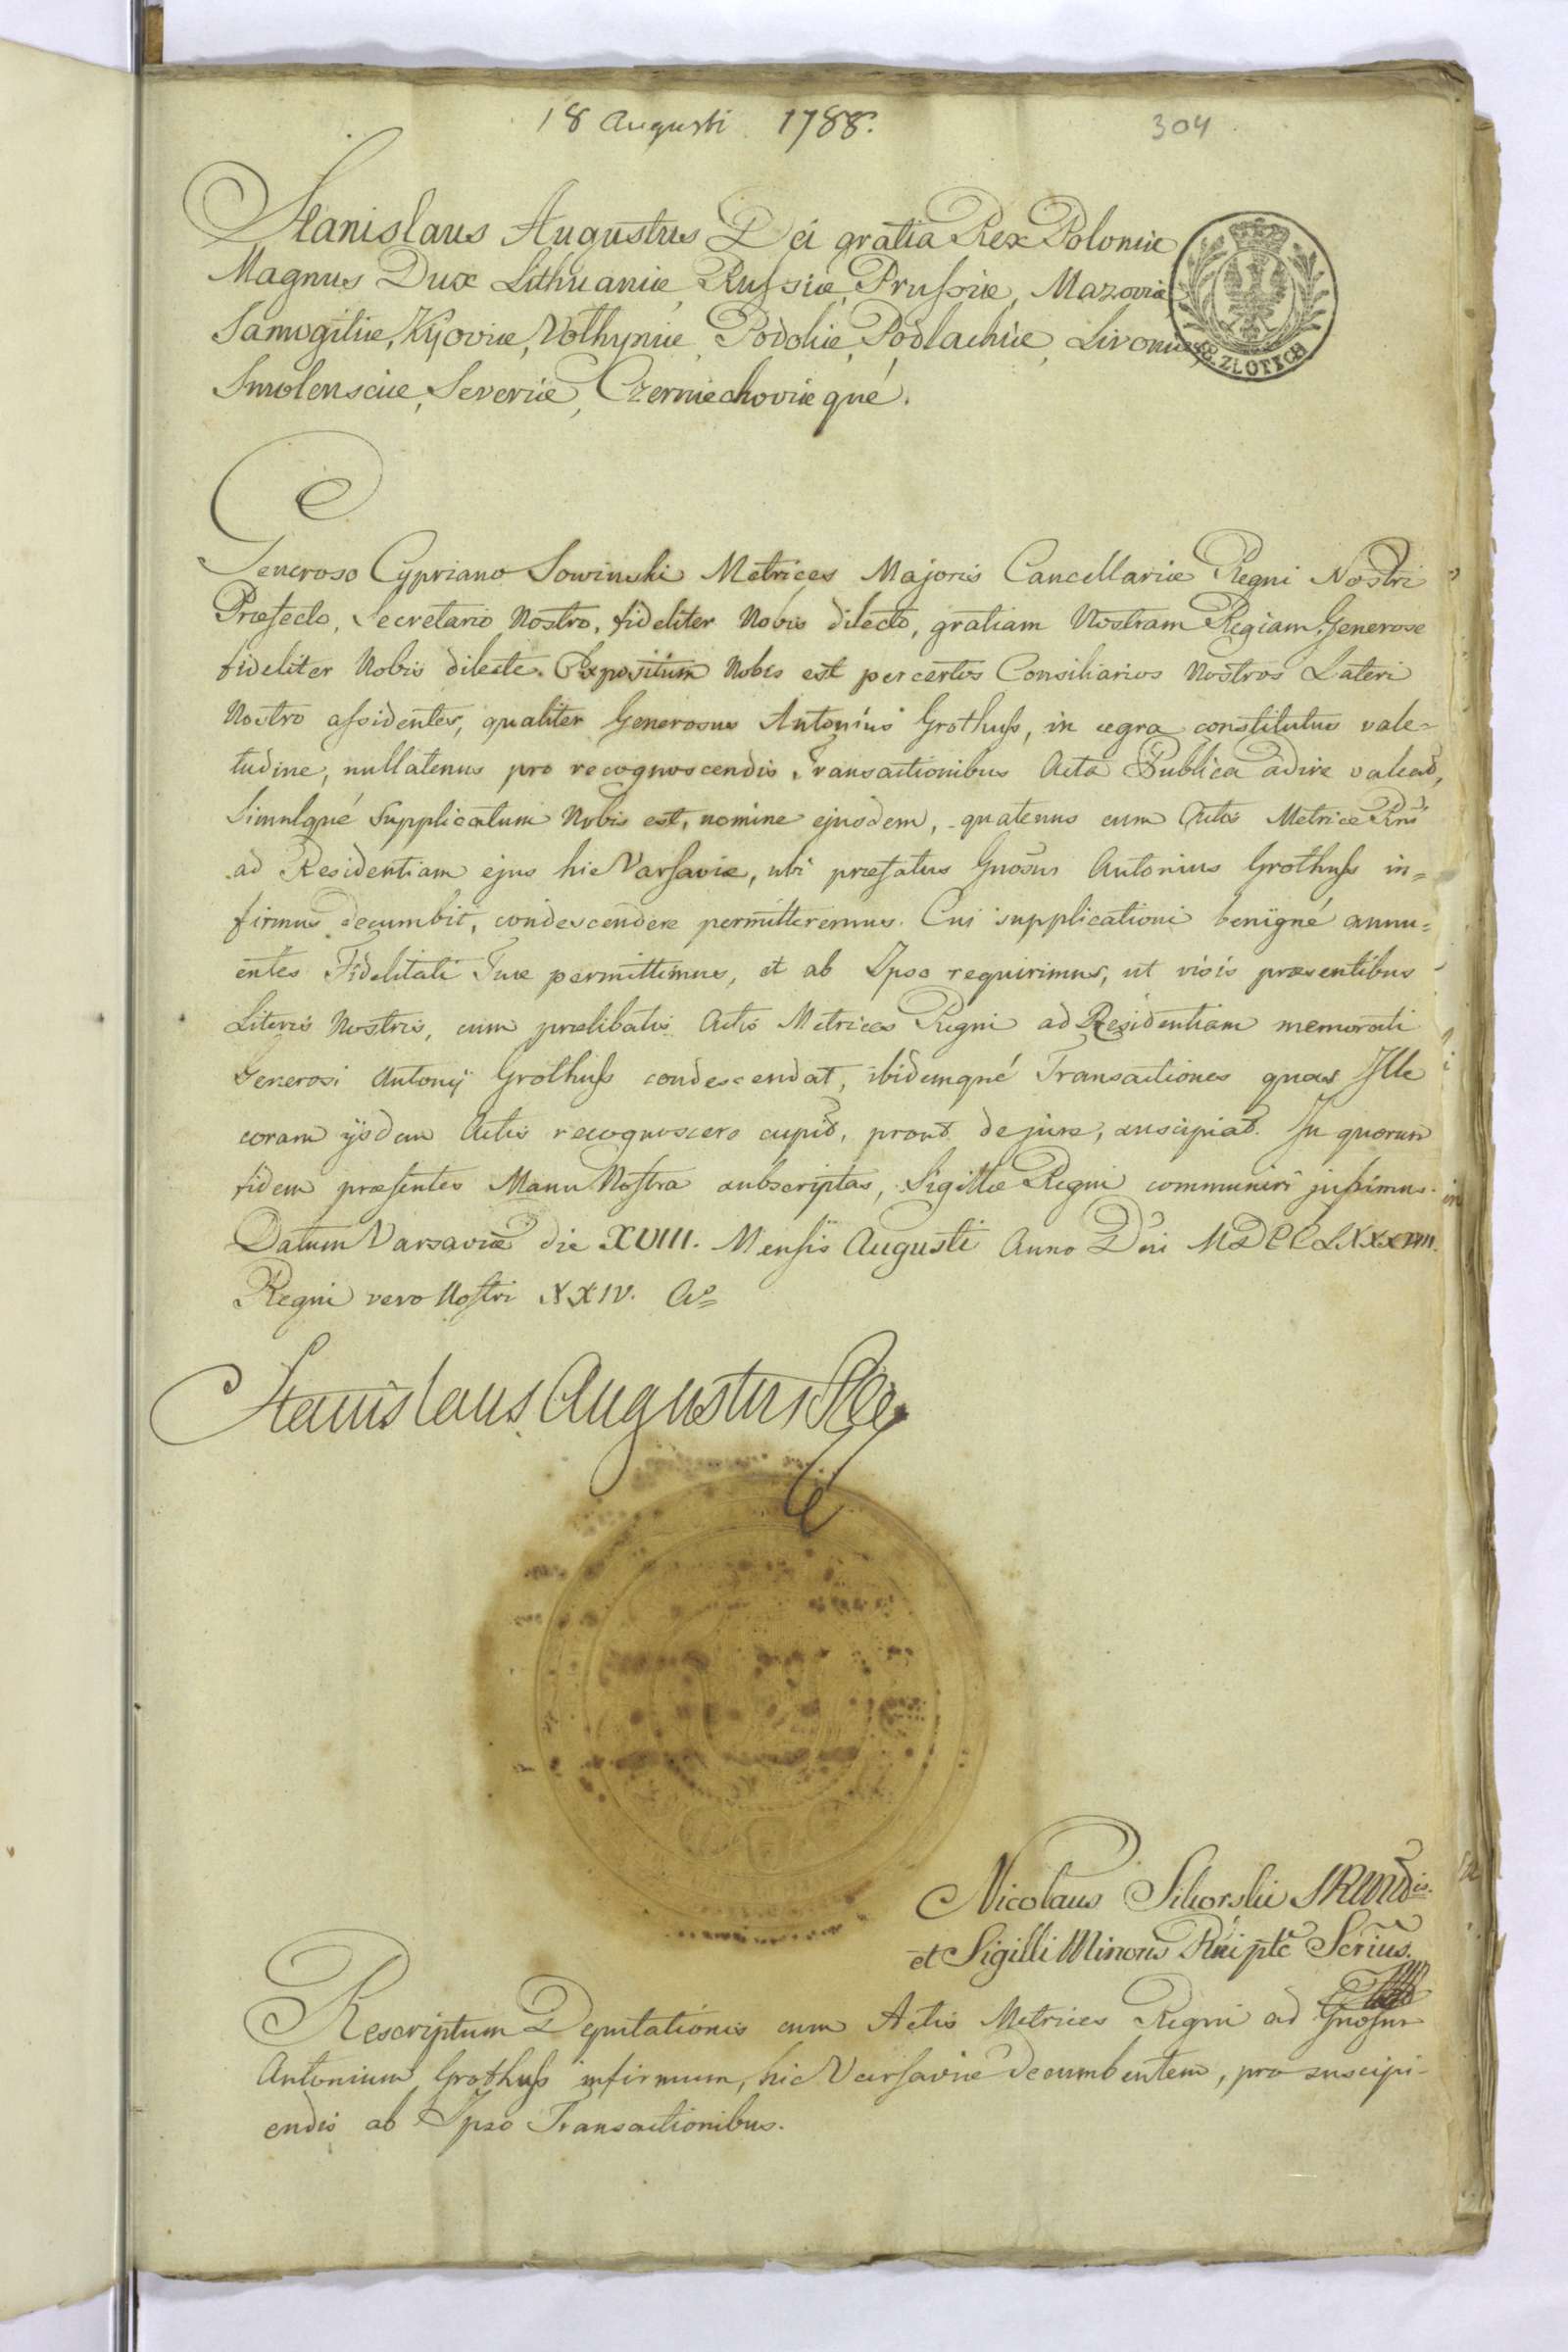 18 Augusti 1788.
304
Stanislaus Augustus Dei gratia Rex Poloniæ
Magnus Dux Lithuaniæ, Russiæ, Prussiæ, Mazoviæ
Samogitiæ, Kyoviæ, Volhyniæ, Podoliæ, Podlachiæ, Livoniæ,
Smolensciæ, Severiæ, Czerniechoviæqué.
ZŁOTYCH
Generoso Cypriano Sowinski Metrices Majoris Cancellariæ Regni Nostri
Præfecto, Secretario Nostro, fideliter Nobis dilecto, gratiam Nostram Regiam. Generose
fideliter Nobis dilecte. Expositum Nobis est per certos Consiliarios Nostros Lateri
Nostro assidentes, qualiter Generosus Antonius Grothuss, in ægra constitutus vale=
tudine, nullatenus pro recognoscendis Transactionibus Acta Publica adire valeat,
Simulqué Supplicatum Nobis est, nomine ejusdem, quatenus cum Actis Metrices Rni
ad Residentiam ejus hic Varsaviæ, ubi præfatus Gnosus Antonius Grothuss in=
firmus decumbit, condescendere permitteremus. Cui supplicationi benigné annu=
entes Fidelitati Tuæ permittimus, et ab Ipso requirimus, ut visis præsentibus
Literis Nostris, cum prælibatis Actis Metrices Regni ad Residentiam memorati
Generosi Antonij Grothuss condescendat, ibidemqué Transactiones quas Ille
coram ijsdem Actis recognoscere cupit, prout de jure, suscipiat. In quorum
fidem præsentes Manu Nostra subscriptas, Sigillo Regni communiri jussimus.
Datum Varsaviæ die XVIII. Mensis Augusti Anno Dni MDCCLXXXVIII.
Regni vero Nostri XXIV. Ao
Stanislaus Augustus Rex
Nicolaus Sikorski
et Sigilli Minoris Rni ptē Scrius.
Rescriptum Deputationis cum Actis Metrices Regni ad Gnosum
Antonium Grothuss infirmum, hic Varsaviæ decumbentem, pro suscipi-
endis ab Ipso Transactionibus.